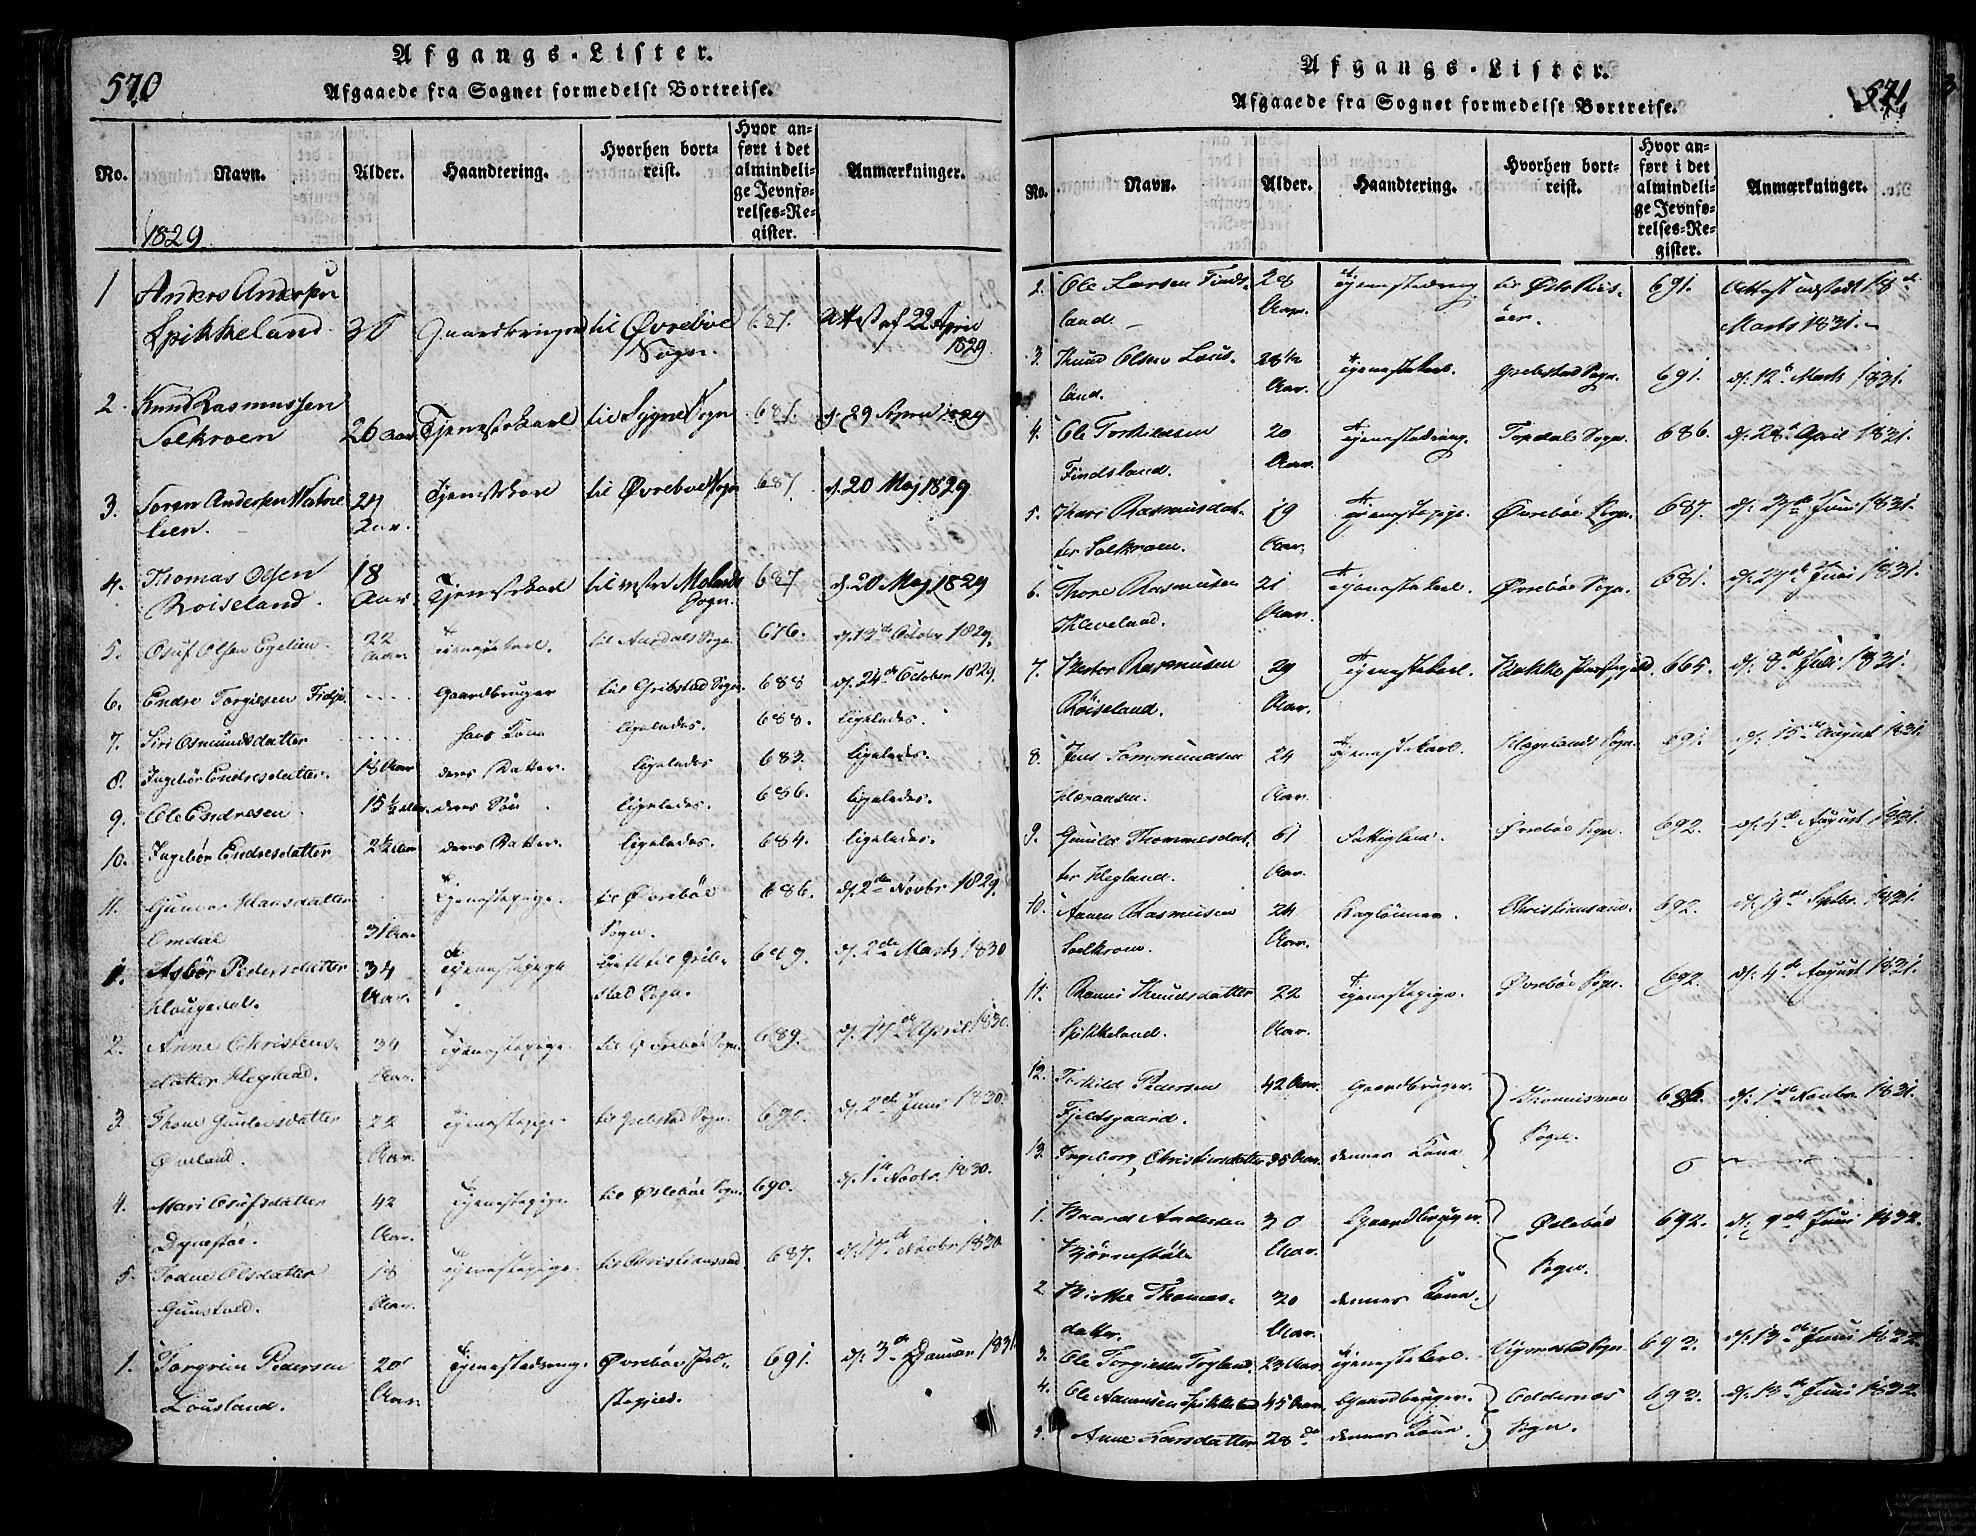 570
Afgangs-Lister.
Afgaaede fra Sognet formedelst Bortreise.
No. Navn. Alder. Haandtering. Hvorhen bortreist. Hvor anført i det almindelige Jevnførelses-Register. Anmærkninger.
1829
1 Anders Andersen 
Spikkeland 30 Gaardbruger til Øvrebøe Sogn. 687. Attest af 22 April 1829
2. Knud Rasmussen
Solkroen 26 Aar Tjenestekarl til Sygne Sogn 687. d. 29 April 1829
3. Søren Andersen 24 Aar. Tjenestekarl til Øvreboe Sogn 687. d. 20 Maj 1829
lien.
4. Thomas Olsen 18 Aar. Tjenestekarl til vestre Molands Sogn. 687 d. 20 Maj 1829
Roiseland.
5. Osuf Olsen Egelien. 22 Aar. Tjenestekarl. til Aardals Sogn 676. d. 13de Octobr 1829.
6. Endre Torgiesen .... Gaardbruger til Gribstad Sogn. 688 d. 24de October 1829.
7. Siri Osmundsdatter ..... hans Kone ligeledes. 688. ligeledes.
8. Ingebør Endresdatter. 18 Aar deres Datter. ligeledes 683. ligeledes.
9. Ole Endresen. 15½ Aar. deres Søn ligeledes. 686. ligeledes.
10. Ingebør Endresdatter 2½ Aar deres Datter. ligeledes. 684. ligeledes.
11. Gunvor Hansdatter
Omdal 31 Aar Tjenestepige. til Øvrebøe Sogn. 686. d. 2den Novbr 1829.
1. Asbør Pedersdatter 34 Aar. Tjenestepige til Gribstad Sogn. 689. d. 2den Marts 1830
Hougedal.
2. Anne Christensdatter Hegland. 34 Aar. Tjenestepige. til Øvrebøe Sogn. 689. d. 17de April 1830.
3. Thone Gunlevsdatter 22 Aar. Tjenestepige. til Grebstad Sogn. 690. d. 2den Juni 1830.
Øveland.
4. Mari Osufsdatter 42 Aar. Tjenestepige. til Øslebøe Sogn. 690. d. 1te Novbr. 1830.
Dynestøl.
5. Todne Olsdatter 18 Aar. Tjenestepige. til Christiansand 687. d. 17de Novbr 1830
Gunstveld.
1. Torgrim Pedersen 20 Aar. Tjenestedreng. Øvrebøe Præstegjeld. 691. d. 3de Januar 1831
Lousland.
571.
Afgangs-Lister.
Afgaaede fra Sognet formedelst Bortreise.
No. Navn. Alder. Haandtering. Hvorhen bortreist. Hvor anført i det almindelige Jevnførelses-Register. Anmærkninger.
2. Ole Larsen Findsland. 28 Aar. Tjenestedreng til Øste Risöer. 691. Attest udstedt 18de Marts 1831.
3. Knud Olsen Lousland. 28½ Aar. Tjenestekarl. Grebstad Sogn. 691. d. 12te Marts 1831.
4. Ole Torkildsen 20 Aar. Tjenestedreng. Topdals Sogn. 686. d. 28de April 1831.
Findsland.
5. Kari Rasmusdatter Solkroen. 19 Aar. Tjenestepige. Øvrebøe Sogn. 687. d. 27de Juni 1831.
6. Thore Rasmusen 21 Aar. Tjenestekarl. Øvrebøe Sogn. 681. d. 27de Juni 1831.
Kleveland.
7. Peder Rasmusen 29 Aar. Tjenestekarl. Bakke Præstegjeld. 665. d. 8de Juli 1831.
Röiseland.
8. Jens Tommundsen 24 Aar. Tjenestekarl. Hægelands Sogn. 691. d. 15de August 1831.
9. Gunild Thommesdatter Hegland. 61 Aar. Fattiglem. Øvrebøe Sogn. 692. d. 4de August 1831.
10. Aanen Rasmusen 24 Aar. Daglønner. Christiansand. 692. d. 19de Septbr. 1831.
Solkroen.
11. Ranni Knudsdatter 22 Aar. Tjenestepige. Øvrebøe Sogn. 692. d. 4de August 1831.
Spikkeland.
12. Torkild Pedersen 42 Aar. Gaardbruger. 686. d. 1ste Novbr. 1831.
Fjeldsgaard. Sogn.
13. Ingeborg Christensdatter 38 Aar. dennes Kone
1. Baard Andersen 30 Aar. Gaardbruger. Øslebøe Sogn. 692. d. 9de Juni 1832.
Bjørnestöl
2 Birthe Thomasdatter. 30 Aar. dennes Kone.
3. Ole Torgiesen Fogland. 23 Aar. Tjenestekarl. Vigmostad Sogn 692. d. 13de Juni 1832.
4. Ole Aanensen Spikkeland 45 Aar. Gaardbruger. Oddernes Sogn. 692. d. 13de Juni 1832.
5. Anne Larsdatter 28 do dennes Kone.